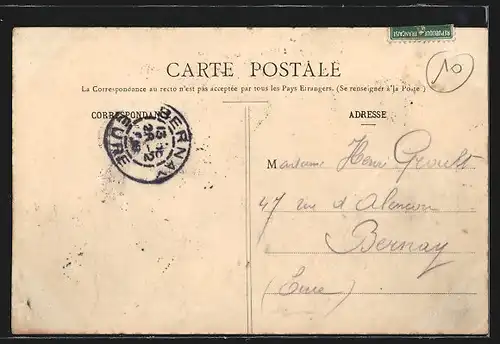 RÉPUBLIQUE FRANÇAISE
10
CARTE POSTALE
La Correspondance au recto n'est pas acceptée par tous les Pays Etrangers. (Se renseigner à la Poste)
CORRESPONDANCE
ADRESSE
BERNAY
EURE
Madame Henri Groult
47 rue d'Alençon
Bernay
(Eure)